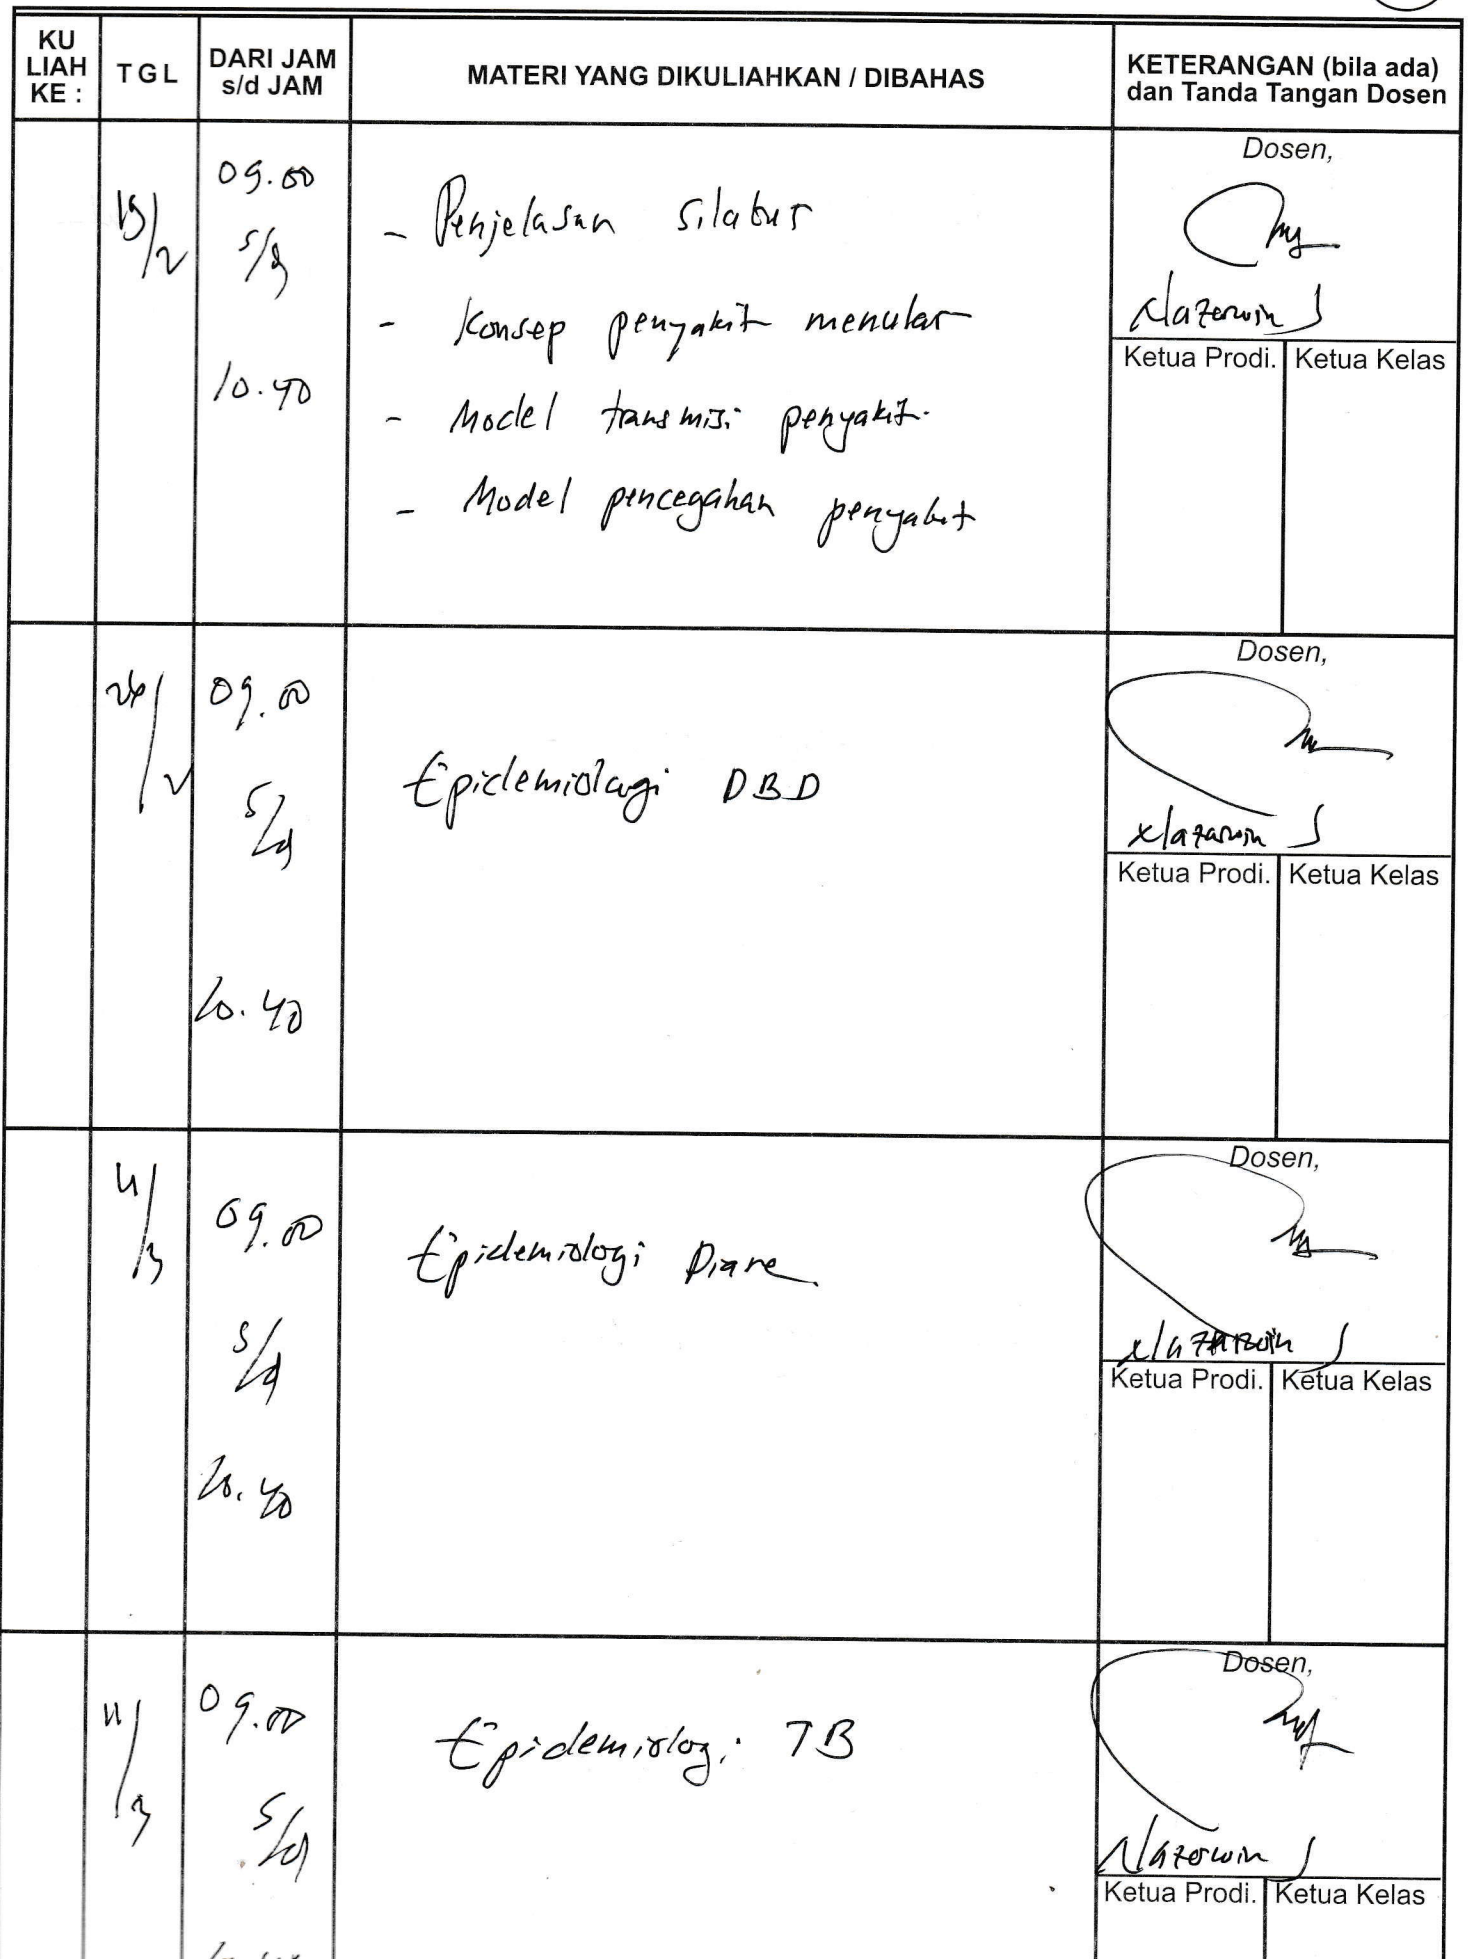 KU LIAH KE :
TGL
DARI JAM s/d JAM
MATERI YANG DIKULIAHKAN / DIBAHAS
KETERANGAN (bila ada) dan Tanda Tangan Dosen
19/2
09.00
s/d
10.40
- Penjelasan silabus
- Konsep penyakit menular
- Model transmisi penyakit
- Model pencegahan penyakit
Dosen,
Ketua Prodi.
Ketua Kelas
26/2
09.00
s/d
10.40
Epidemiologi DBD
Dosen,
Ketua Prodi.
Ketua Kelas
4/3
09.00
s/d
10.40
Epidemiologi Diare
Dosen,
Ketua Prodi.
Ketua Kelas
11/3
09.00
s/d
Epidemiologi TB
Dosen,
Ketua Prodi.
Ketua Kelas